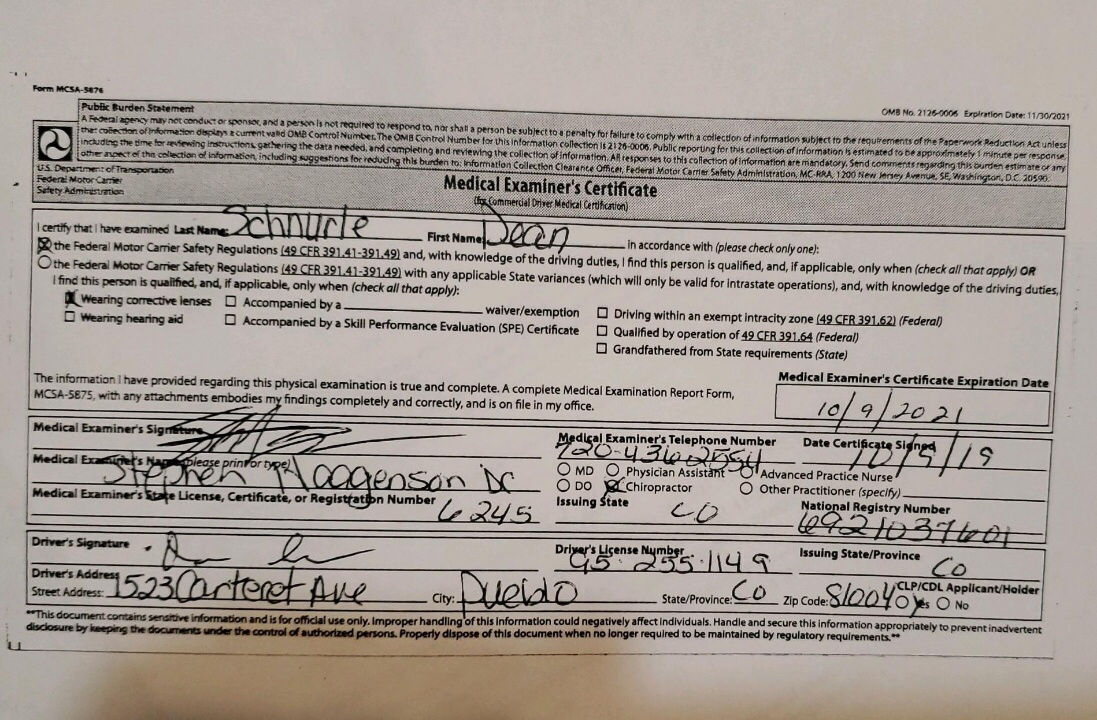 Form MCSA-5876
OMB No. 2126-0006 Expiration Date: 11/30/2021
Public Burden Statement
A Federal agency may not conduct or sponsor, and a person is not required to respond to, nor shall a person be subject to a penalty for failure to comply with a collection of information subject to the requirements of the Paperwork Reduction Act unless
that collection of information displays a current valid OMB Control Number. The OMB Control Number for this information collection is 2126-0006. Public reporting for this collection of information is estimated to be approximately 1 minute per response,
including the time for reviewing instructions, gathering the data needed, and completing and reviewing the collection of information. All responses to this collection of information are mandatory. Send comments regarding this burden estimate or any
other aspect of this collection of information, including suggestions for reducing this burden to: Information Collection Clearance Officer, Federal Motor Carrier Safety Administration, MC-RRA, 1200 New Jersey Avenue, SE, Washington, D.C. 20590.
U.S. Department of Transportation
Federal Motor Carrier
Safety Administration
Medical Examiner's Certificate
(for Commercial Driver Medical Certification)
I certify that I have examined Last Name: Schnurle First Name: Dean in accordance with (please check only one):
the Federal Motor Carrier Safety Regulations (49 CFR 391.41-391.49) and, with knowledge of the driving duties, I find this person is qualified, and, if applicable, only when (check all that apply) OR
the Federal Motor Carrier Safety Regulations (49 CFR 391.41-391.49) with any applicable State variances (which will only be valid for intrastate operations), and, with knowledge of the driving duties,
I find this person is qualified, and, if applicable, only when (check all that apply):
Wearing corrective lenses Accompanied by a waiver/exemption Driving within an exempt intracity zone (49 CFR 391.62) (Federal)
Wearing hearing aid Accompanied by a Skill Performance Evaluation (SPE) Certificate Qualified by operation of 49 CFR 391.64 (Federal)
Grandfathered from State requirements (State)
The information I have provided regarding this physical examination is true and complete. A complete Medical Examination Report Form,
MCSA-5875, with any attachments embodies my findings completely and correctly, and is on file in my office.
Medical Examiner's Certificate Expiration Date
10/9/2021
Medical Examiner's Signature
Medical Examiner's Telephone Number
720-436-2554
Date Certificate Signed
10/9/19
Medical Examiner's Name (please print or type)
Stephen Haagenson DC
MD Physician Assistant Advanced Practice Nurse
DO Chiropractor Other Practitioner (specify)
Medical Examiner's State License, Certificate, or Registration Number
6245
Issuing State
CO
National Registry Number
6921037601
Driver's Signature
Driver's License Number
95-255-1149
Issuing State/Province
CO
Driver's Address
Street Address: 1523 Carteret Ave City: Pueblo State/Province: CO Zip Code: 81004
CLP/CDL Applicant/Holder
Yes No
**This document contains sensitive information and is for official use only. Improper handling of this information could negatively affect individuals. Handle and secure this information appropriately to prevent inadvertent
disclosure by keeping the documents under the control of authorized persons. Properly dispose of this document when no longer required to be maintained by regulatory requirements.**